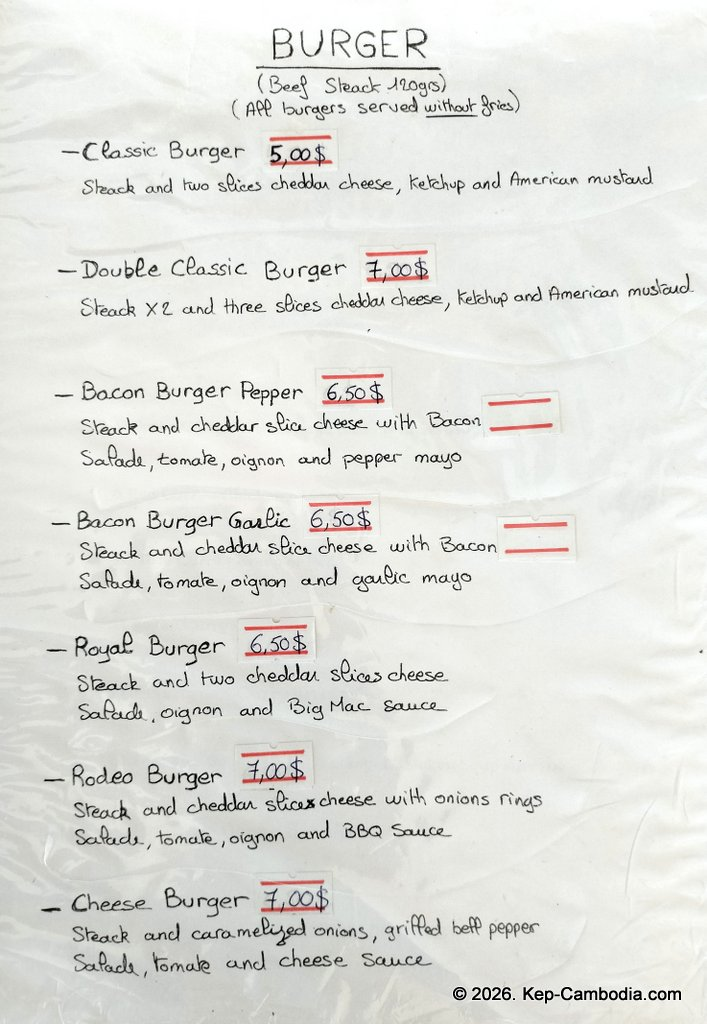 BURGER
(Beef Steack 120grs)
(All burgers served without fries)
- Classic Burger 5,00$
Steack and two slices cheddar cheese, Ketchup and American mustard
- Double Classic Burger 7,00$
Steack X2 and three slices cheddar cheese, Ketchup and American mustard.
- Bacon Burger Pepper 6,50$
Steack and cheddar slice cheese with Bacon
Salade, tomate, oignon and pepper mayo
- Bacon Burger Garlic 6,50$
Steack and cheddar slice cheese with Bacon
Salade, tomate, oignon and garlic mayo
- Royal Burger 6,50$
Steack and two cheddar slices cheese
Salade, oignon and Big Mac sauce
- Rodeo Burger 7,00$
Steack and cheddar slices cheese with onions rings
Salade, tomate, oignon and BBQ Sauce
- Cheese Burger 7,00$
Steack and caramelized onions, grilled bell pepper
Salade, tomate and cheese sauce
© 2026. Kep-Cambodia.com